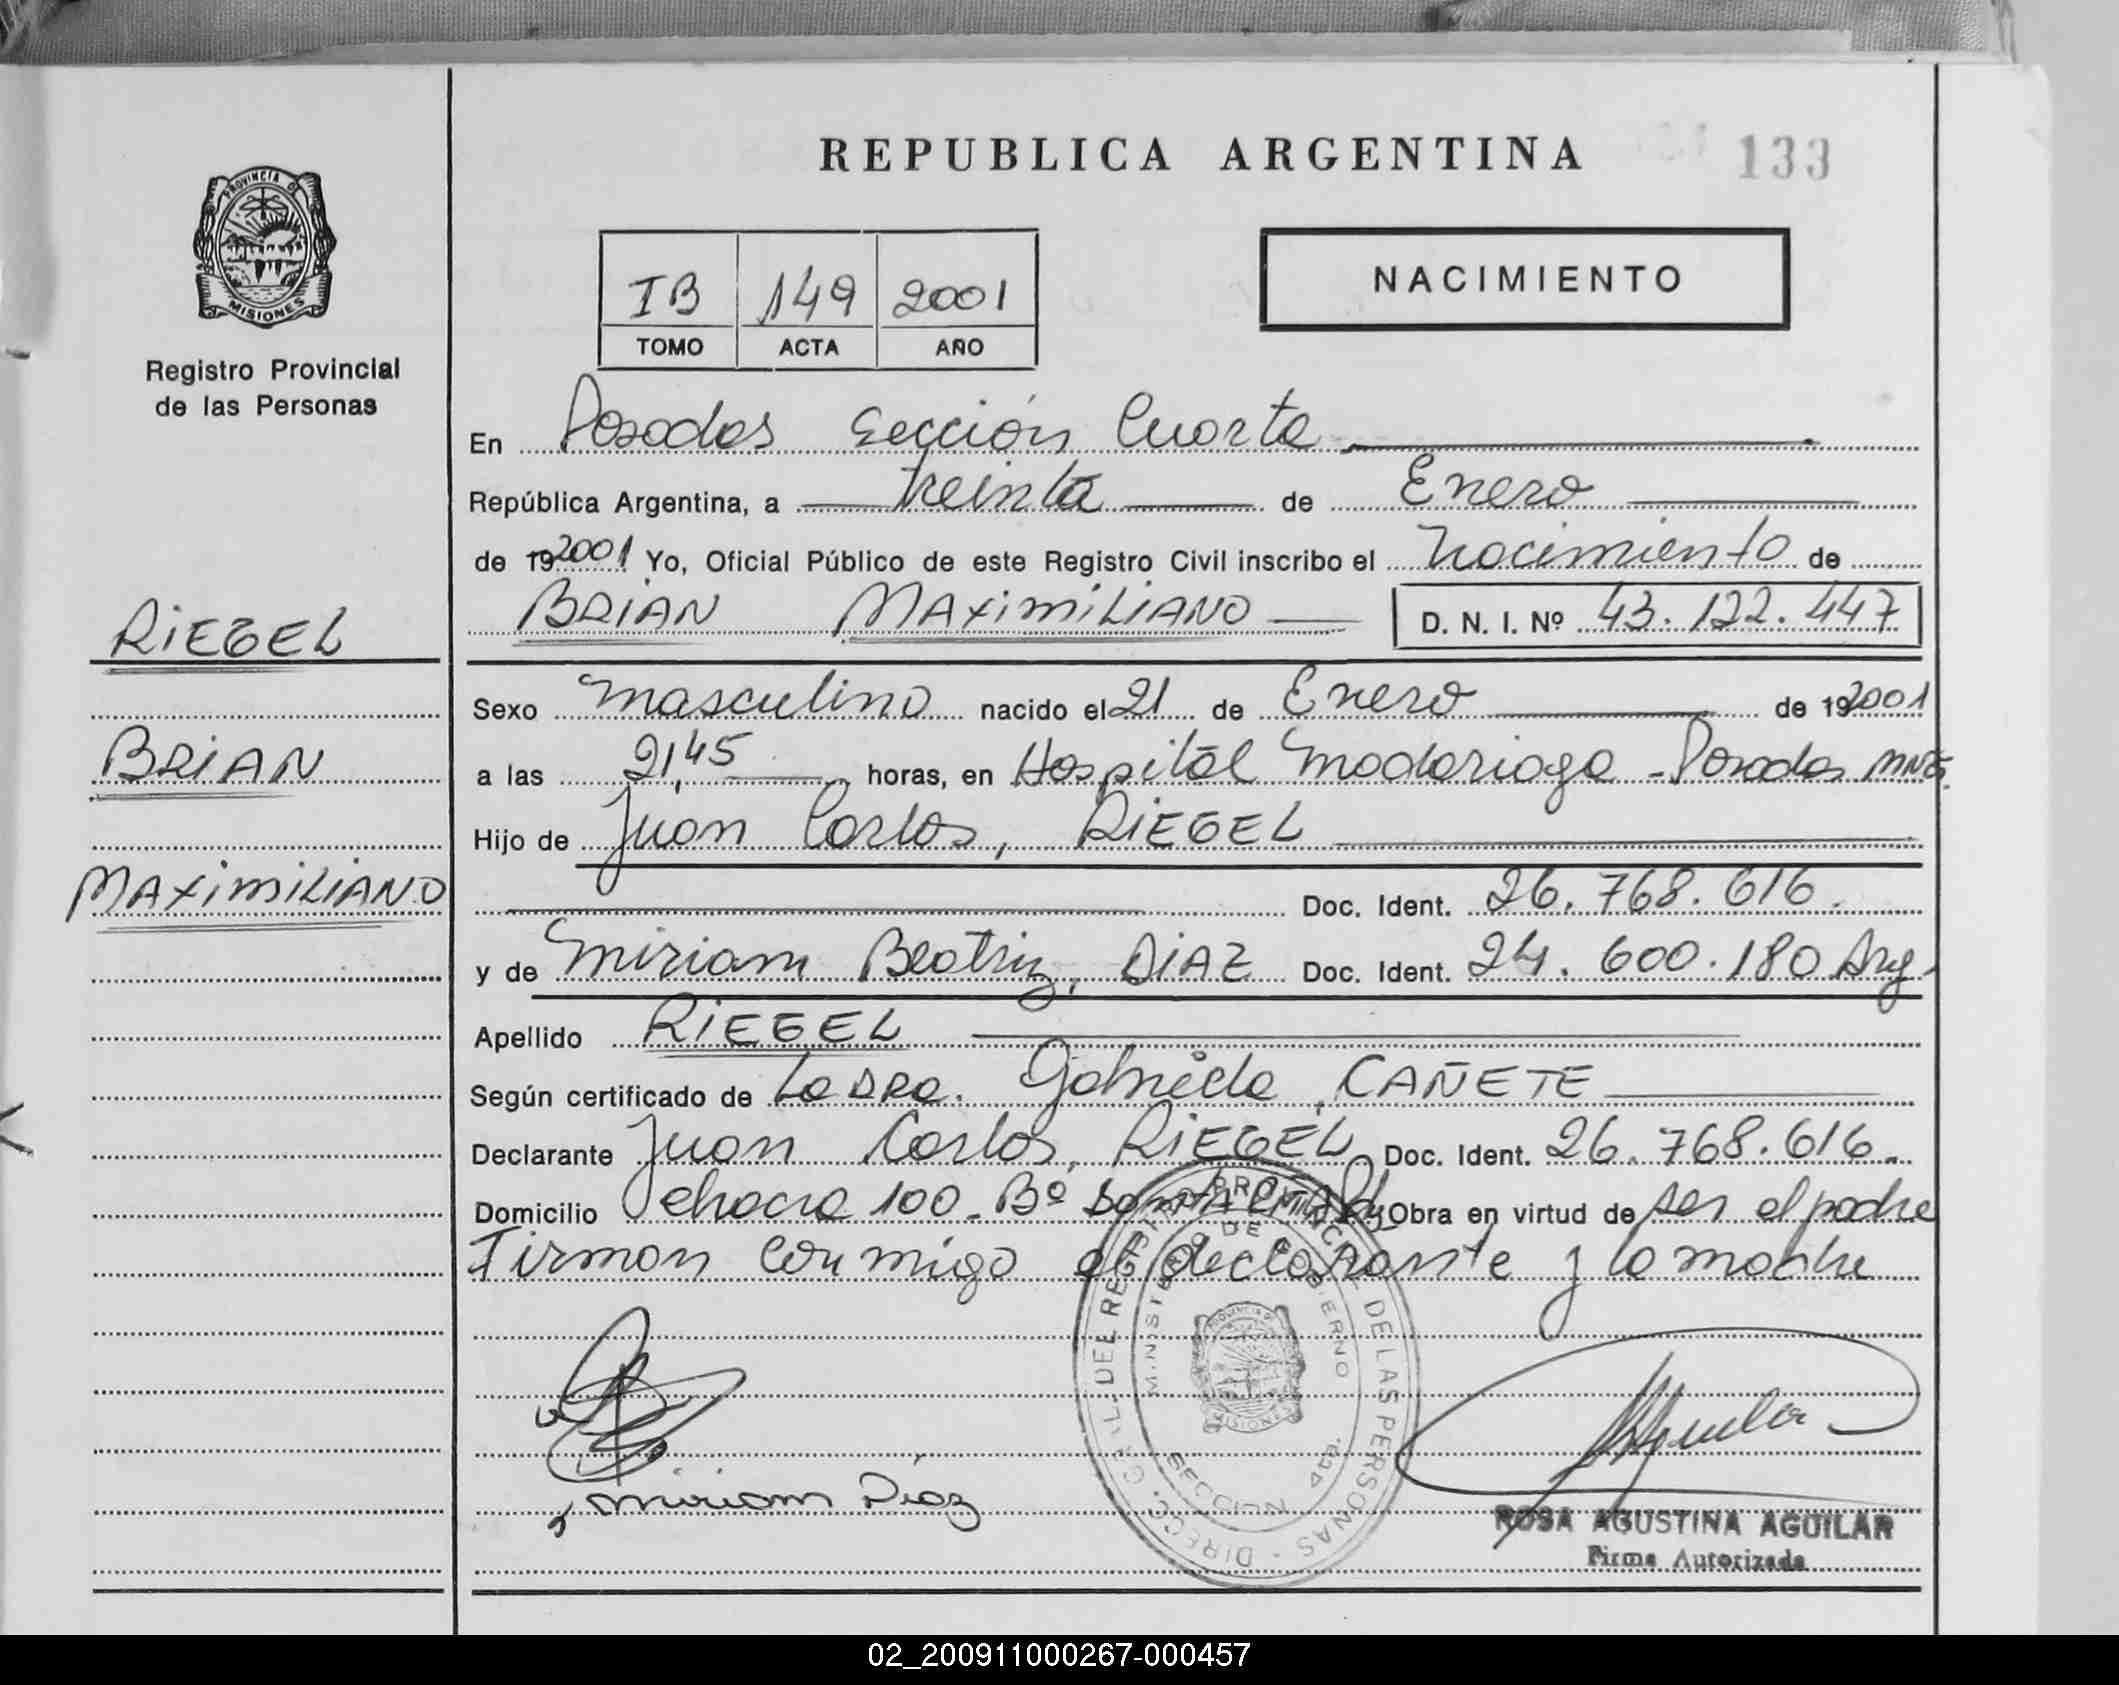 REPUBLICA ARGENTINA
133
PROVINCIA DE
MISIONES
Registro Provincial
de las Personas
IB 149 2001
TOMO ACTA AÑO
NACIMIENTO
En Posadas Sección Cuarta
República Argentina, a treinta de Enero
de 192001 Yo, Oficial Público de este Registro Civil inscribo el Nacimiento de
BRIAN MAXIMILIANO D. N. I. Nº 43.122.447
RIEGEL
BRIAN
MAXIMILIANO
Sexo masculino nacido el 21 de Enero de 192001
a las 21,45 horas, en Hospital Madariaga - Posadas Mnes.
Hijo de Juan Carlos, RIEGEL
Doc. Ident. 26.768.616.
y de Miriam Beatriz, DIAZ Doc. Ident. 24.600.180 Arg.
Apellido RIEGEL
Según certificado de La DRA. Gabriela, CAÑETE
Declarante Juan Carlos, RIEGEL Doc. Ident. 26.768.616.
Domicilio Chacra 100 - Bº Santa Obra en virtud de ser el padre
Firman conmigo el declarante y la madre
DIRECC. GRAL. DEL REGISTRO PROVINCIAL DE LAS PERSONAS
MINISTERIO DE GOBIERNO
PROVINCIA D
MISIONES
SECCION 4ta.
Miriam Diaz
Aguilar
ROSA AGUSTINA AGUILAR
Firma Autorizada
02_200911000267-000457